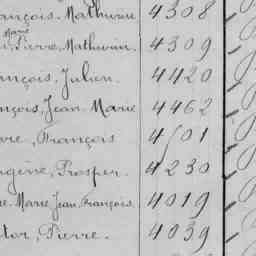 ançois, Mathurin 4308
Marie
, Pierre, Mathurin. 4309
ançois, Julien. 4420
nçois, Jean Marie 4462
rre, François 4501
ugène, Prosper. 4230
e. Marie, Jean, François. 4019
tor, Pierre. 4039